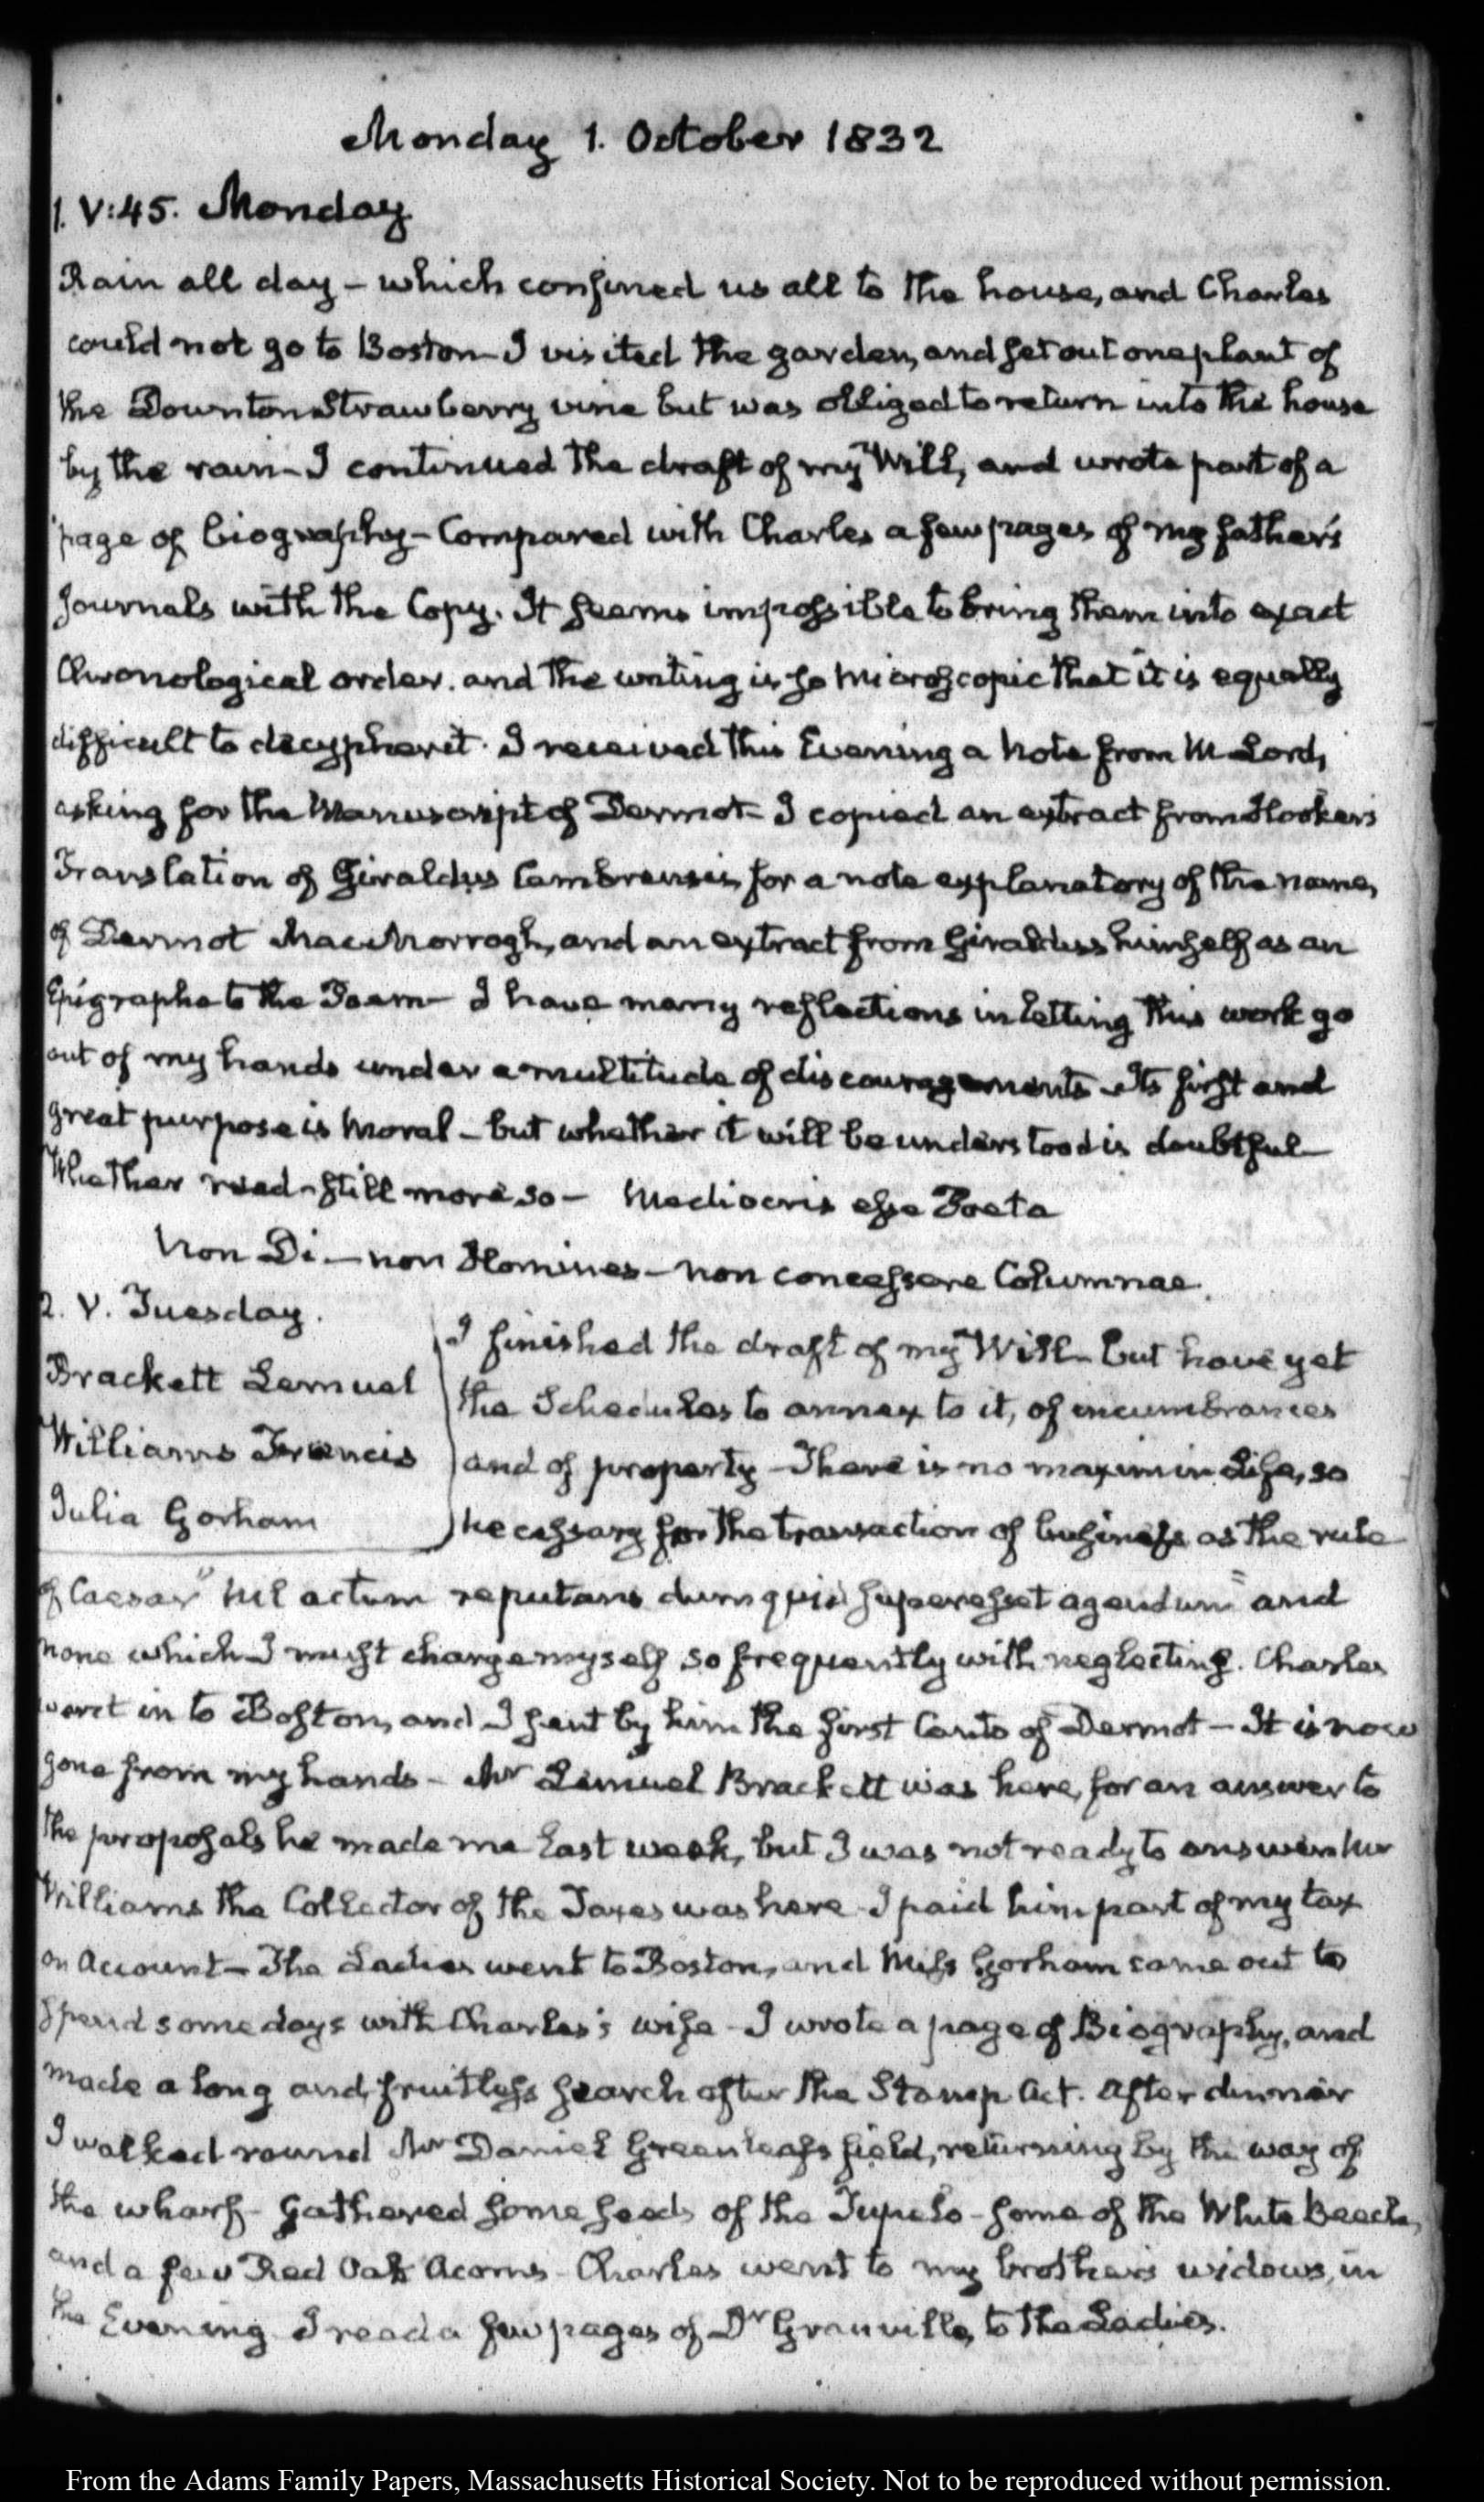 Monday 1. October 1832
1. V:45. Monday
Rain all day – which confined us all to the house, and Charles
could not go to Boston – I visited the garden, and set out one plant of
the Downton Strawberry vine but was obliged to return into the house
by the rain – I continued the draft of my Will, and wrote part of a
page of biography – Compared with Charles a few pages of my father's
Journals with the Copy. It seems impossible to bring them into exact
Chronological order. and the writing is so microscopic that it is equally
difficult to decypher it. I received this Evening a Note from Mr Lord,
asking for the Manuscript of Dermot – I copied an extract from Hooker's
Translation of Giraldus Cambrensis, for a note explanatory of the name,
of Dermot MacMorrogh, and an extract from Giraldus himself as an
Epigraphe to the Poem – I have many reflections in letting this work go
out of my hands under a multitude of discouragements – Its first and
great purpose is moral – but whether it will be understood is doubtful –
Whether read – still more so – Mediocris esse Poeta
Non Di – non Homines – non concessere Columnae.
2. V. Tuesday.
Brackett Lemuel
Williams Francis
Julia Gorham
I finished the draft of my Will – but have yet
the Schedules to annex to it, of incumbrances
and of property – There is no maxim in Life, so
necessary for the transaction of business as the rule
of Caesar "Nil actum reputans dum quid superesset agendum" and
none which I must charge myself so frequently with neglecting. Charles
went in to Boston, and I sent by him the first Canto of Dermot – It is now
gone from my hands – Mr Lemuel Brackett was here, for an answer to
the proposals he made me last week, but I was not ready to answer Mr
Williams the Collector of the Taxes was here – I paid him part of my tax
on Account – The Ladies went to Boston, and Miss Gorham came out to
spend some days with Charles's wife – I wrote a page of Biography, and
made a long and fruitless search after the Stamp Act. After dinner
I walked round Mr Daniel Greenleaf's field, returning by the way of
the wharf – Gathered some seeds of the Tupelo – some of the White Beech,
and a few Red Oak Acorns – Charles went to my brother's widows, in
the Evening I read a few pages of Dr Granville, to the Ladies.
From the Adams Family Papers, Massachusetts Historical Society. Not to be reproduced without permission.